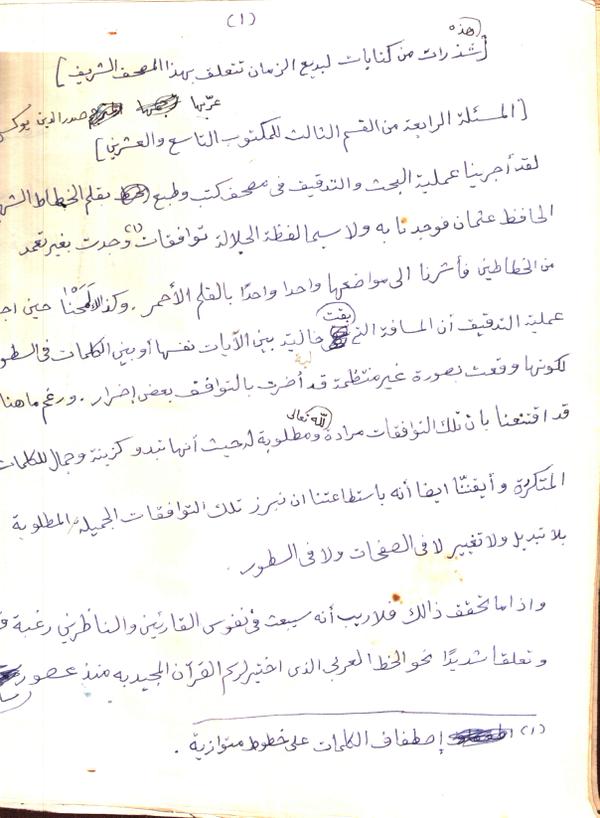 (١)
هذه
[شذرات من كتابات لبديع الزمان تتعلق بهذا المصحف الشريف]
عرّبها صدر الدين يوكس
[المسئلة الرابعة من القسم الثالث للمكتوب التاسع والعشرين]
لقد أجرينا عملية البحث والتدقيق فى مصحف كتب وطبع بقلم الخطاط الشه
الحافظ عثمان فوجدنا به ولا سيما لفظة الجلالة توافقات(١) وجدت بغير تعمد
من الخطاطين فأشرنا الى مواضعها واحدا واحدًا بالقلم الأحمر . وكذا لاحظنا حين اجر
بقت
عملية التدقيق أن المسافة التى خالية بين الآيات نفسها أو بين الكلمات فى السطو
لكونها وقعت بصورة غير منتظمة قد أضرت بالتوافق بعض إضرار . ورغم ما هنا
لله تعالى
قد اقتنعنا بان تلك التوافقات مرادة ومطلوبة لـ حيث أنها تبدو كزينة وجمال للكلمات
المتكررة وأيقنّا ايضا أنه باستطاعتنا ان نبرز تلك التوافقات الجميلة المطلوبة
بلا تبديل ولا تغيير لا فى الصفحات ولا فى السطور .
واذا ما تحقق ذالك فلا ريب أنه سيبعث فى نفوس القارئين والناظرين رغبة ق
وتعلقا شديدًا نحو الخط العربى الذى اختير لرسم القرآن المجيد به منذ عصور
(١) إصطفاف الكلمات على خطوط متوازية .